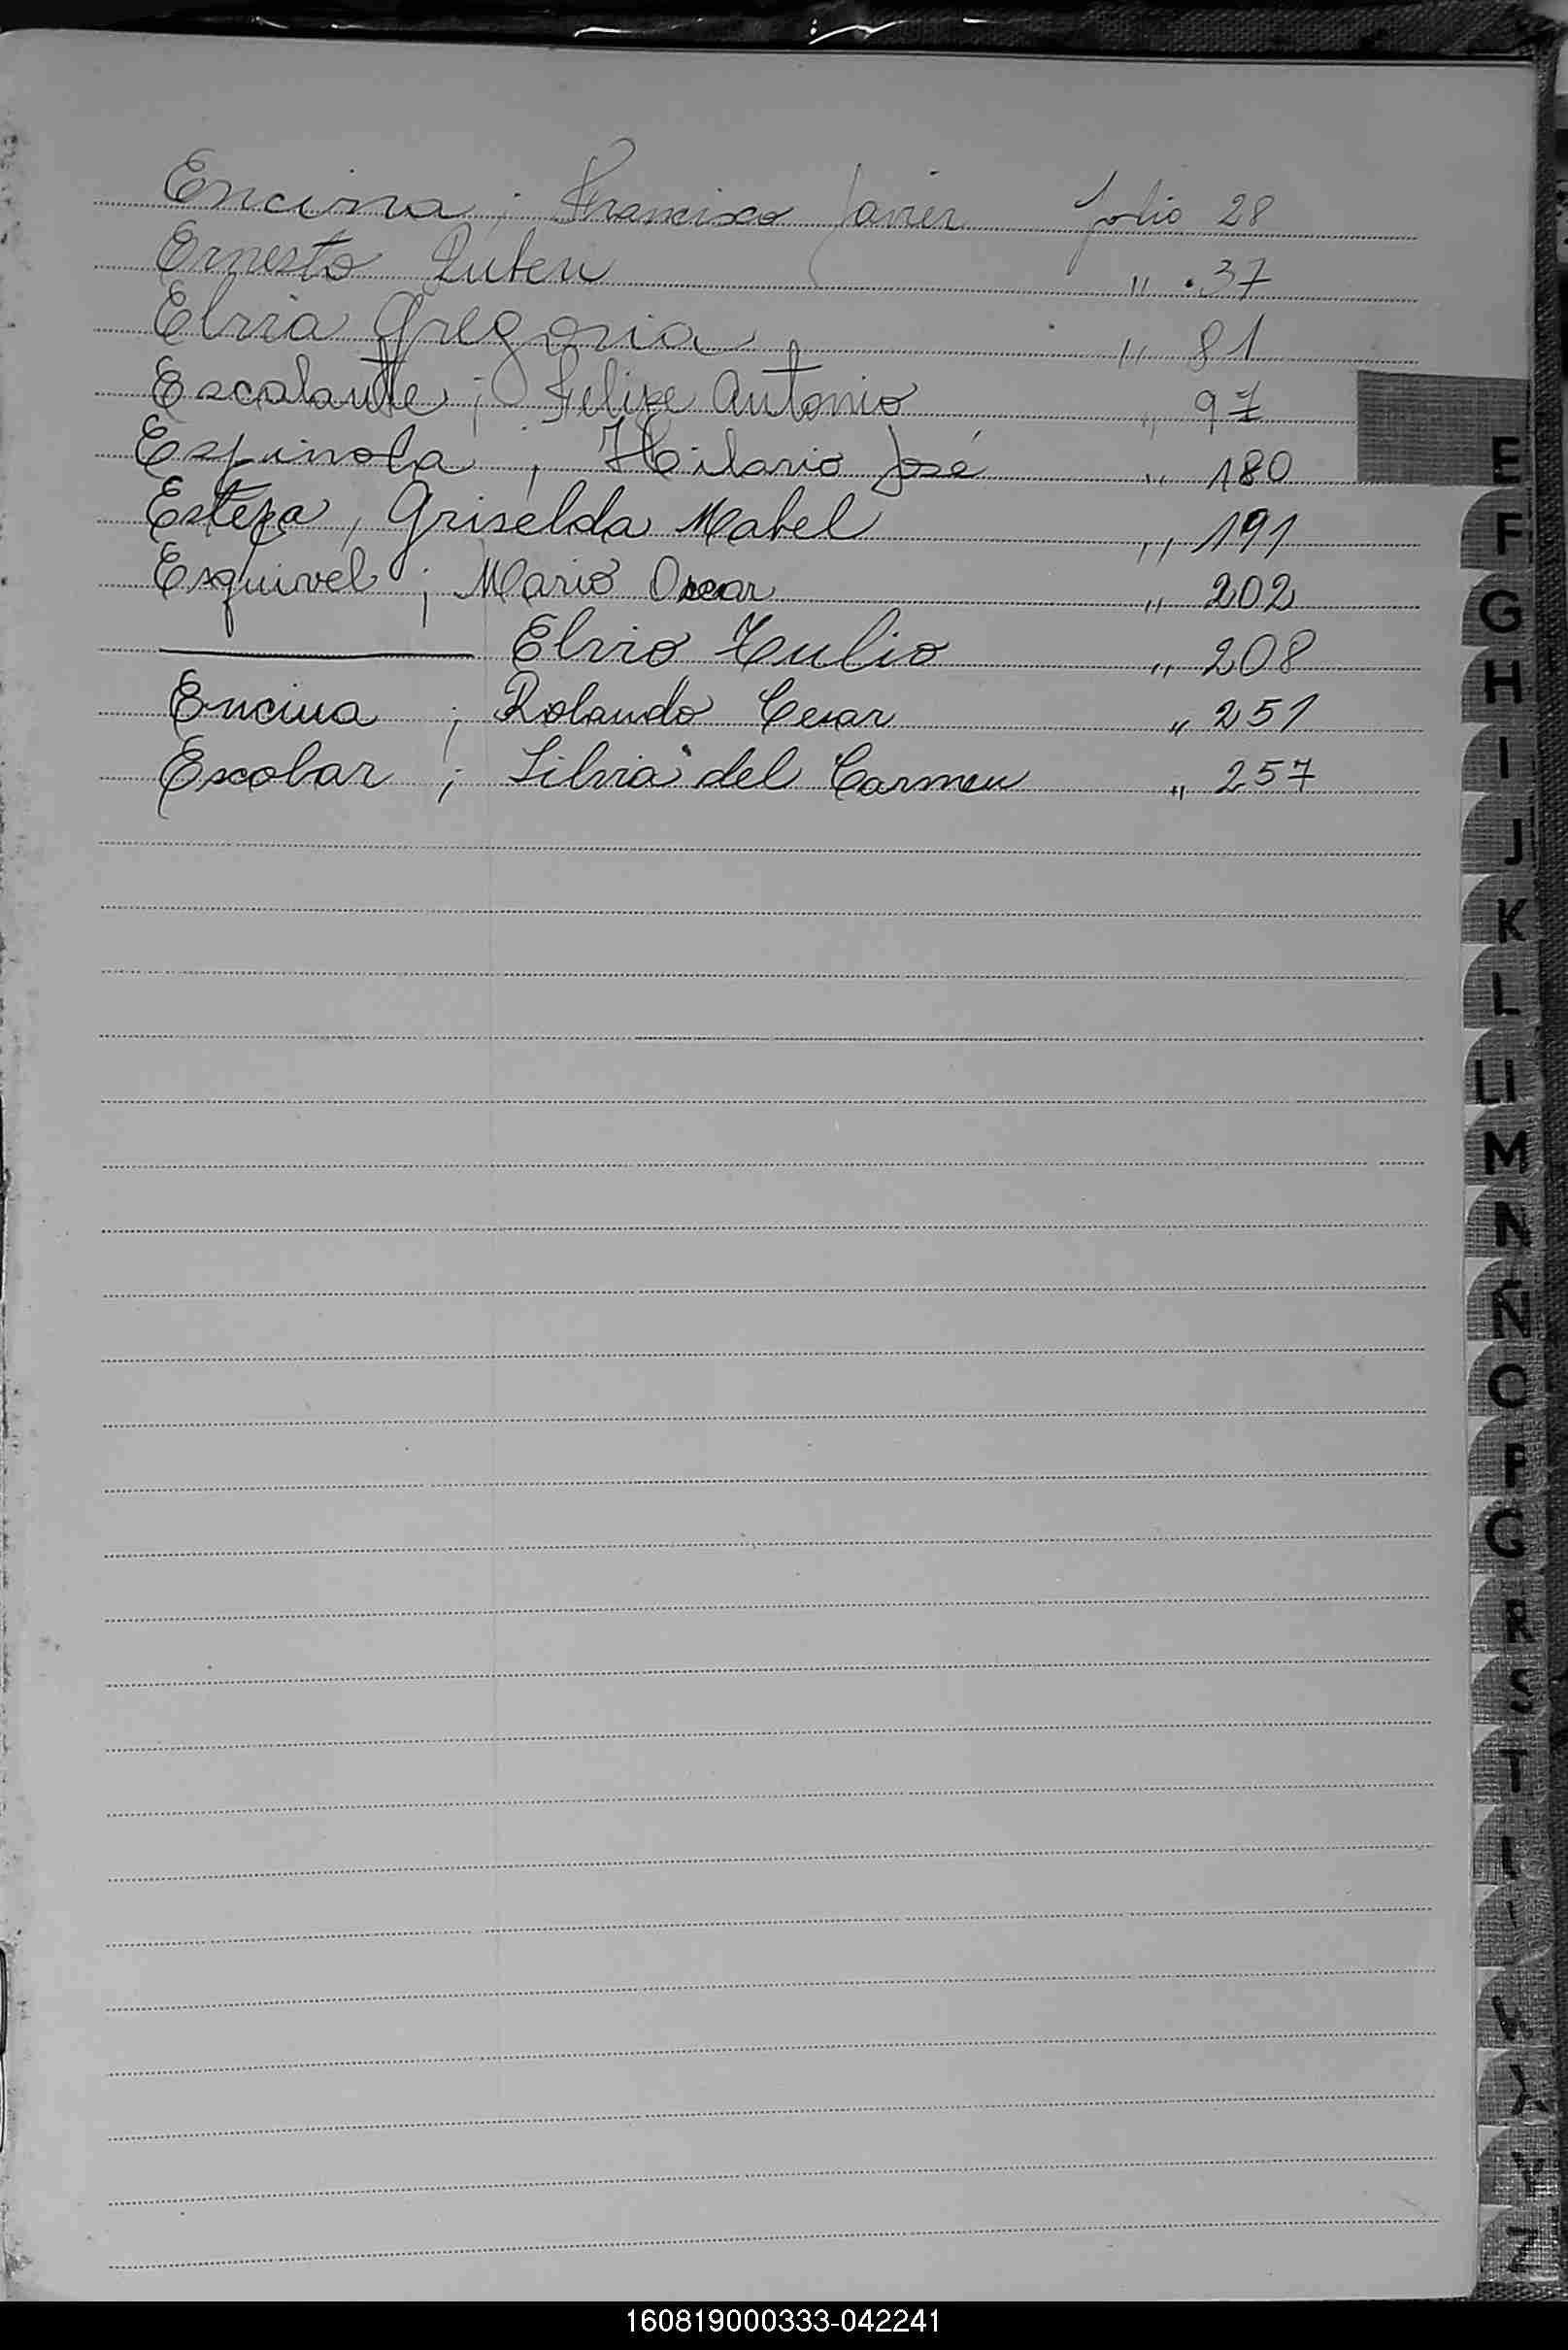 Encina ; Francisco Javier folio 28
Ernesto Ruben " 37
Elvia Gregoria " 81
Escalante ; Felipe Antonio " 97
Espinola , Hilario José " 180
Estepa , Griselda Mabel " 191
Esquivel ; Mario Oscar " 202
——— Elvio Tulio " 208
Encina ; Rolando Cesar " 251
Escobar ; Silvia del Carmen " 257
E
F
G
H
I
J
K
L
Ll
M
N
Ñ
O
P
Q
R
S
T
Z
160819000333-042241